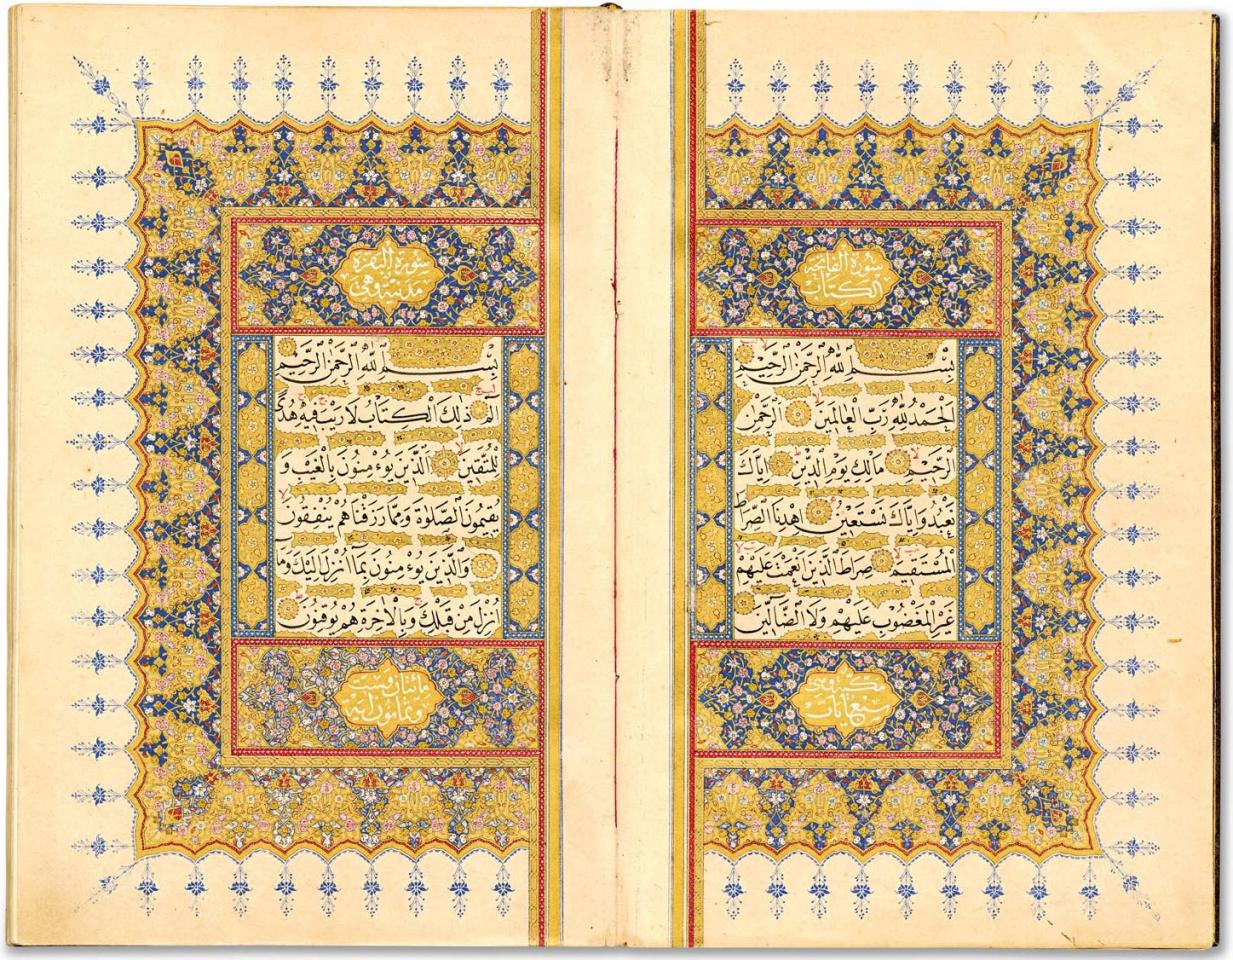 سورة الفاتحة
الكتاب
بِسْمِ اللَّهِ الرَّحْمَٰنِ الرَّحِيمِ
اَلْحَمْدُ لِلَّهِ رَبِّ الْعَالَمِينَ الرَّحْمَٰنِ
الرَّحِيمِ مَالِكِ يَوْمِ الدِّينِ إِيَّاكَ
نَعْبُدُ وَإِيَّاكَ نَسْتَعِينُ اِهْدِنَا الصِّرَاطَ
الْمُسْتَقِيمَ صِرَاطَ الَّذِينَ أَنْعَمْتَ عَلَيْهِمْ
غَيْرِ الْمَغْضُوبِ عَلَيْهِمْ وَلَا الضَّالِّينَ
مكية وهي
سبع آيات
سورة البقرة
مدنية وهي
بِسْمِ اللَّهِ الرَّحْمَٰنِ الرَّحِيمِ
الٓمٓ ذَٰلِكَ الْكِتَابُ لَا رَيْبَ فِيهِ هُدًى
لِلْمُتَّقِينَ الَّذِينَ يُؤْمِنُونَ بِالْغَيْبِ وَ
يُقِيمُونَ الصَّلٰوةَ وَمِمَّا رَزَقْنَاهُمْ يُنْفِقُونَ
وَالَّذِينَ يُؤْمِنُونَ بِمَا أُنْزِلَ إِلَيْكَ وَمَا
أُنْزِلَ مِنْ قَبْلِكَ وَبِالْآخِرَةِ هُمْ يُوقِنُونَ
مائتان وست
وثمانون آية